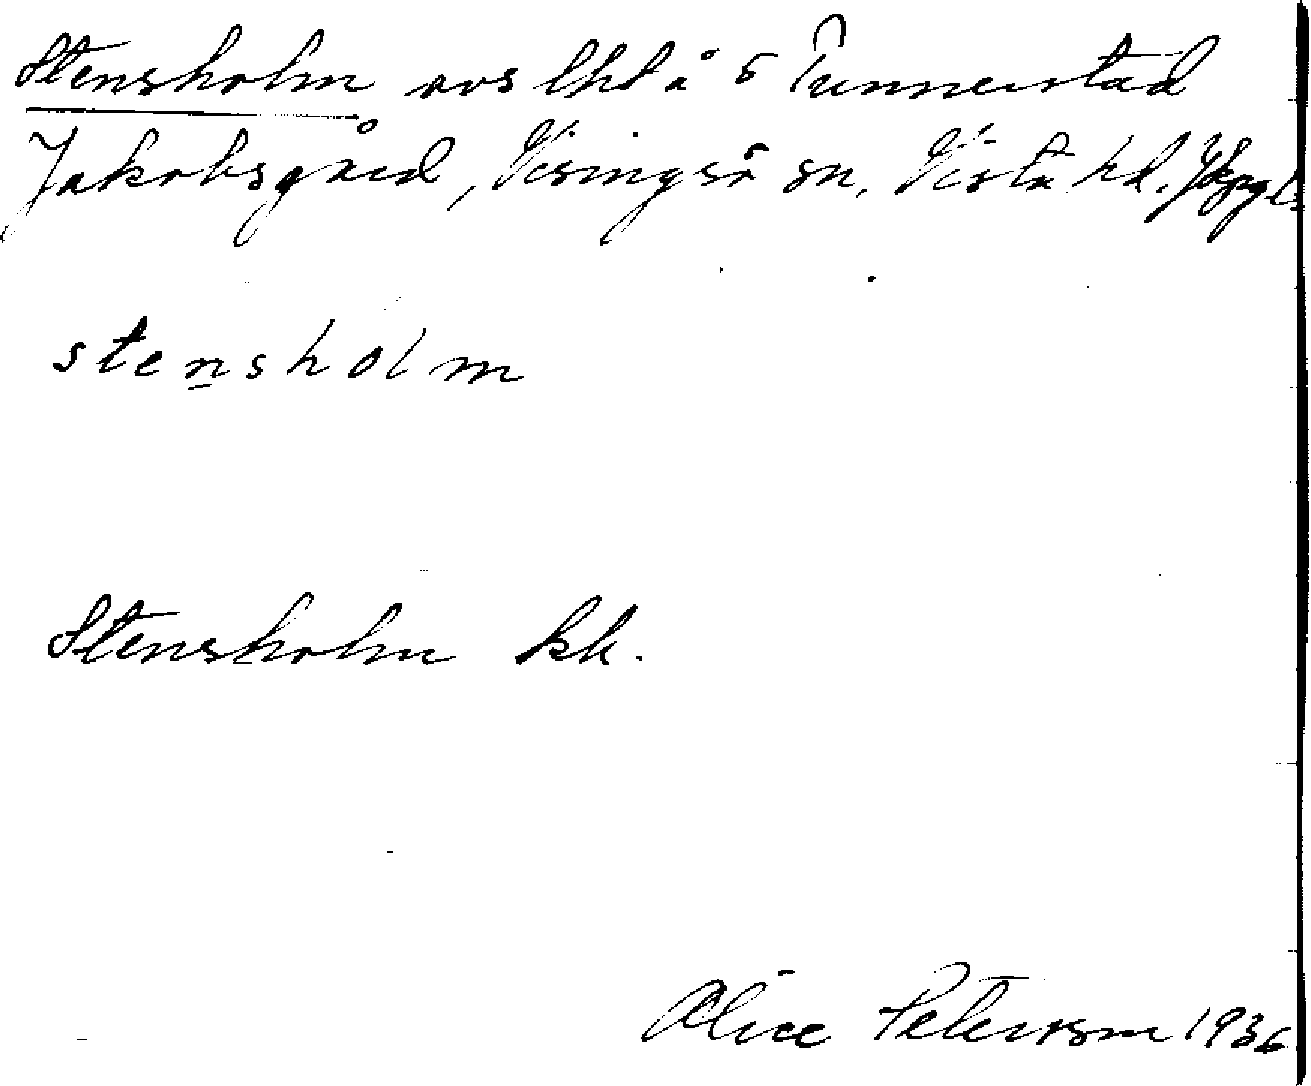 Stensholm avs lht å 5 Tunnerstad
Jakobsgård, Visingsö sn, Vista hd. Jkpgl
stensholm
Stensholm kk.
Alice Peterson 1936